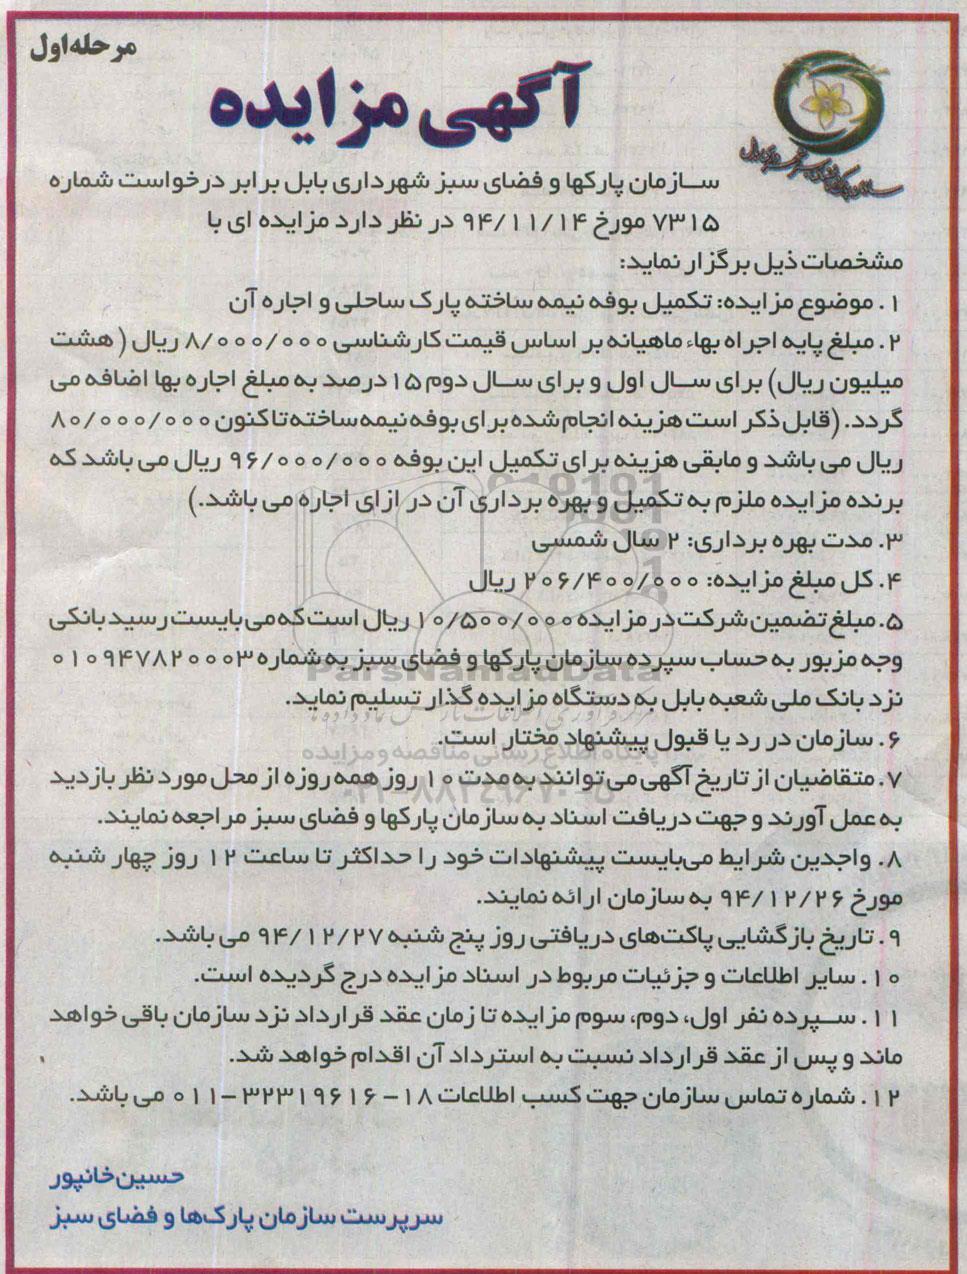 مرحله اول
آگهی مزایده
سازمان پارکها و فضای سبز شهرداری بابل برابر درخواست شماره
۷۳۱۵ مورخ ۹۴/۱۱/۱۴ در نظر دارد مزایده ای با
مشخصات ذیل برگزار نماید:
۱. موضوع مزایده: تکمیل بوفه نیمه ساخته پارک ساحلی و اجاره آن
۲. مبلغ پایه اجراه بهاء ماهیانه بر اساس قیمت کارشناسی ۸/۰۰۰/۰۰۰ ریال (هشت
میلیون ریال) برای سال اول و برای سال دوم ۱۵ درصد به مبلغ اجاره بها اضافه می
گردد. (قابل ذکر است هزینه انجام شده برای بوفه نیمه ساخته تاکنون ۸۰/۰۰۰/۰۰۰
ریال می باشد و مابقی هزینه برای تکمیل این بوفه ۹۶/۰۰۰/۰۰۰ ریال می باشد که
برنده مزایده ملزم به تکمیل و بهره برداری آن در ازای اجاره می باشد.)
۳. مدت بهره برداری: ۲ سال شمسی
۴. کل مبلغ مزایده: ۲۰۶/۴۰۰/۰۰۰ ریال
۵. مبلغ تضمین شرکت در مزایده ۱۰/۵۰۰/۰۰۰ ریال است که می بایست رسید بانکی
وجه مزبور به حساب سپرده سازمان پارکها و فضای سبز به شماره ۰۱۰۹۴۷۸۲۰۰۰۳
نزد بانک ملی شعبه بابل به دستگاه مزایده گذار تسلیم نماید.
۶. سازمان در رد یا قبول پیشنهاد مختار است.
۷. متقاضیان از تاریخ آگهی می توانند به مدت ۱۰ روز همه روزه از محل مورد نظر بازدید
به عمل آورند و جهت دریافت اسناد به سازمان پارکها و فضای سبز مراجعه نمایند.
۸. واجدین شرایط می‌بایست پیشنهادات خود را حداکثر تا ساعت ۱۲ روز چهار شنبه
مورخ ۹۴/۱۲/۲۶ به سازمان ارائه نمایند.
۹. تاریخ بازگشایی پاکت‌های دریافتی روز پنج شنبه ۹۴/۱۲/۲۷ می باشد.
۱۰. سایر اطلاعات و جزئیات مربوط در اسناد مزایده درج گردیده است.
۱۱. سپرده نفر اول، دوم، سوم مزایده تا زمان عقد قرارداد نزد سازمان باقی خواهد
ماند و پس از عقد قرارداد نسبت به استرداد آن اقدام خواهد شد.
۱۲. شماره تماس سازمان جهت کسب اطلاعات ۱۸-۳۲۳۱۹۶۱۶-۰۱۱ می باشد.
حسین خانپور
سرپرست سازمان پارک‌ها و فضای سبز
ParsNamadData
پایگاه اطلاع رسانی مناقصه و مزایده